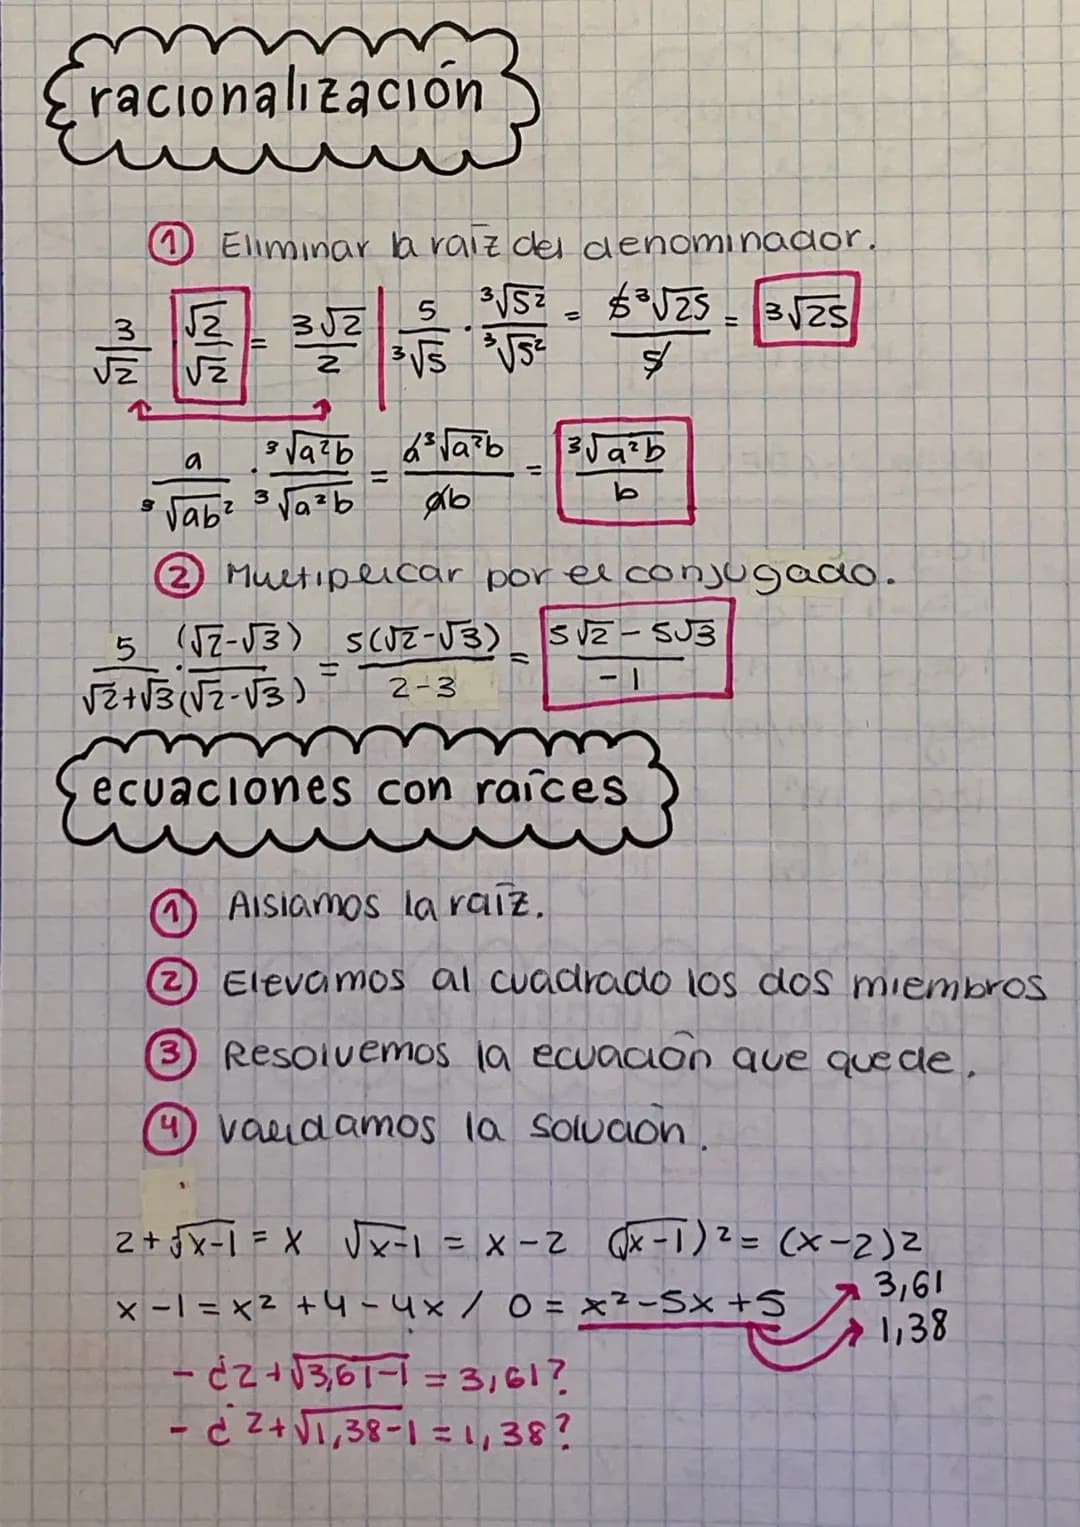 racionalización
① Eliminar la raíz del denominador.
3/√2 · √2/√2 = 3√2/2 | 5/³√5 · ³√5²/³√5² = 5³√25/5 = ³√25
a/³√ab² · ³√a²b/³√a²b = a³√a²b/ab = ³√a²b/b
② Multiplicar por el conjugado.
5/√2+√3 · (√2-√3)/(√2-√3) = 5(√2-√3)/2-3 = 5√2-5√3/-1
ecuaciones con raíces
① Aislamos la raíz.
② Elevamos al cuadrado los dos miembros
③ Resolvemos la ecuación que quede.
④ validamos la solución.
2+√x-1 = x √x-1 = x-2 (√x-1)2 = (x-2)2
x-1 = x2 +4-4x / 0 = x2-5x+5
3,61
1,38
- ¿2+√3,61-1 = 3,61?
- ¿2+√1,38-1 = 1,38?